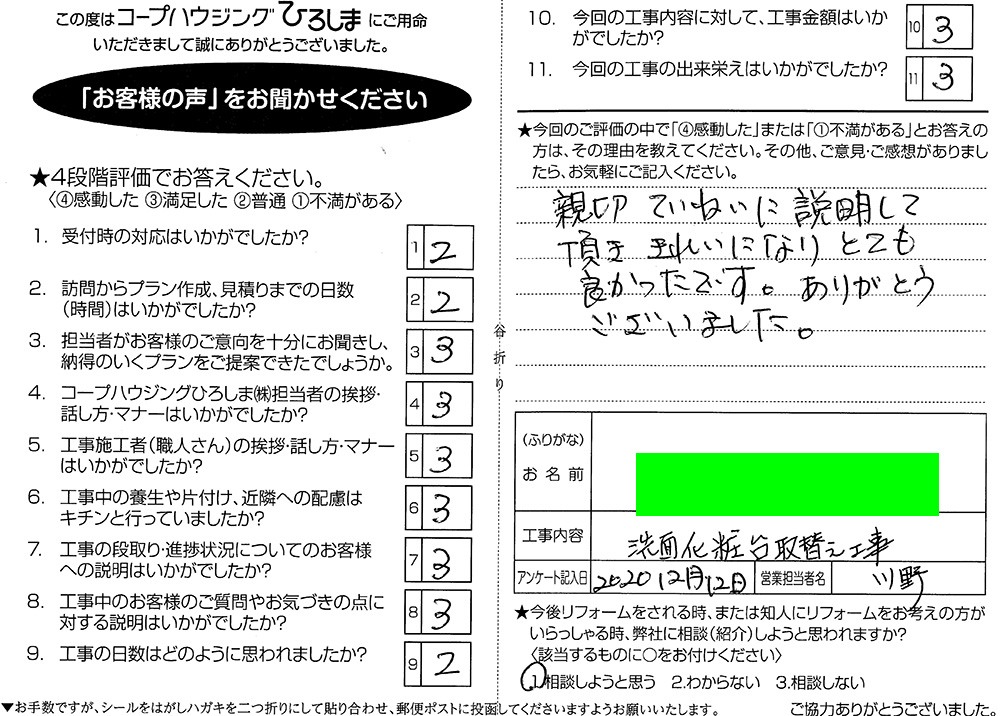 この度はコープハウジングひろしまにご用命
いただきまして誠にありがとうございました。
「お客様の声」をお聞かせください
★4段階評価でお答えください。
〈④感動した ③満足した ②普通 ①不満がある〉
1. 受付時の対応はいかがでしたか? 1 2
2. 訪問からプラン作成、見積りまでの日数
(時間)はいかがでしたか? 2 2
3. 担当者がお客様のご意向を十分にお聞きし、
納得のいくプランをご提案できたでしょうか。 3 3
4. コープハウジングひろしま㈱担当者の挨拶・
話し方・マナーはいかがでしたか? 4 3
5. 工事施工者(職人さん)の挨拶・話し方・マナー
はいかがでしたか? 5 3
6. 工事中の養生や片付け、近隣への配慮は
キチンと行っていましたか? 6 3
7. 工事の段取り・進捗状況についてのお客様
への説明はいかがでしたか? 7 3
8. 工事中のお客様のご質問やお気づきの点に
対する説明はいかがでしたか? 8 3
9. 工事の日数はどのように思われましたか? 9 2
▼お手数ですが、シールをはがしハガキを二つ折りにして貼り合わせ、郵便ポストに投函してくださいますようお願いいたします。
谷折り
10. 今回の工事内容に対して、工事金額はいか
がでしたか? 10 3
11. 今回の工事の出来栄えはいかがでしたか? 11 3
★今回のご評価の中で「④感動した」または「①不満がある」とお答えの
方は、その理由を教えてください。その他、ご意見・ご感想がありまし
たら、お気軽にご記入ください。
親切 ていねいに 説明して
頂き きれいになり とても
良かったです。ありがとう
ございました。
(ふりがな)
お名前
工事内容 洗面化粧台取替え工事
アンケート記入日 2020 12月12日 営業担当者名 川野
★今後リフォームをされる時、または知人にリフォームをお考えの方が
いらっしゃる時、弊社に相談(紹介)しようと思われますか?
〈該当するものに○をお付けください〉
1.相談しようと思う 2.わからない 3.相談しない
ご協力ありがとうございました。